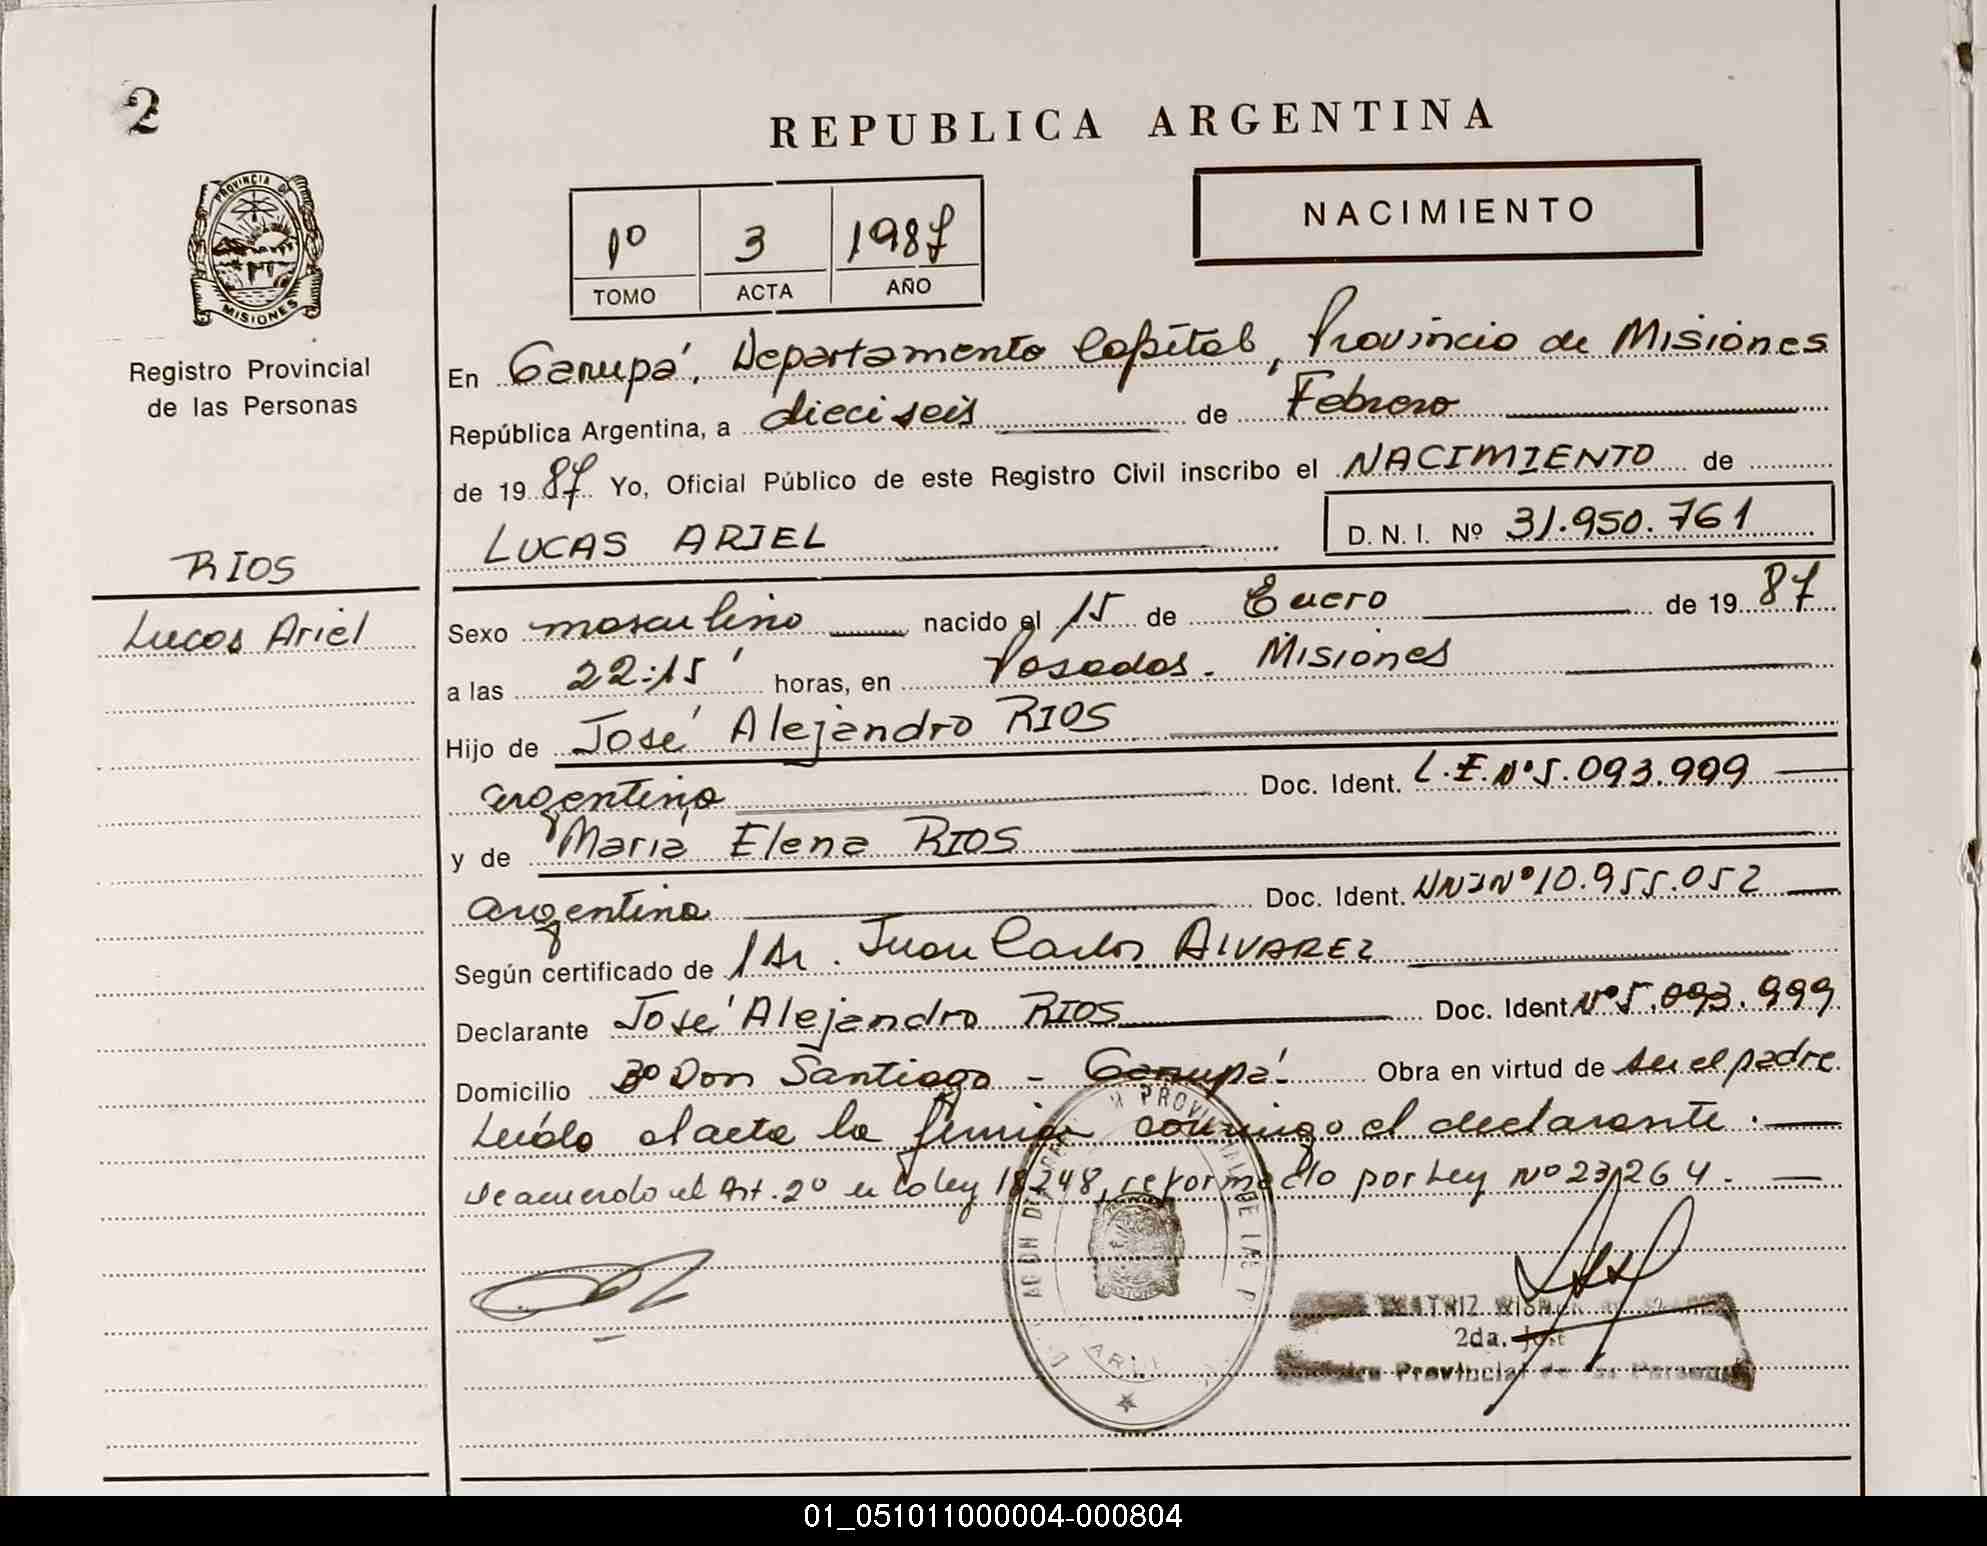 2
REPUBLICA ARGENTINA
NACIMIENTO
1º 3 1987
TOMO ACTA AÑO
PROVINCIA DE
MISIONES
Registro Provincial
de las Personas
RIOS
Lucas Ariel
En Garupá, Departamento Capital, Provincia de Misiones
República Argentina, a dieciseis de Febrero
de 19 87 Yo, Oficial Público de este Registro Civil inscribo el NACIMIENTO de
LUCAS ARIEL D. N. I. Nº 31.950.761
Sexo masculino nacido el 15 de Enero de 19 87
a las 22:15' horas, en Posadas. Misiones
Hijo de José Alejandro RIOS
argentino Doc. Ident. L.E. Nº 5.093.999
y de María Elena RIOS
argentina Doc. Ident. DNI Nº 10.955.052
Según certificado de Dr. Juan Carlos ALVAREZ
Declarante José Alejandro RIOS Doc. Ident Nº 5.093.999
Domicilio Bº Don Santiago - Garupá. Obra en virtud de ser el padre
Leída el acta la firma conmigo el declarante.
De acuerdo al Art. 2º en la ley 18248, reformado por Ley Nº 23.264.
2da.
Provincial de las Personas
01_051011000004-000804